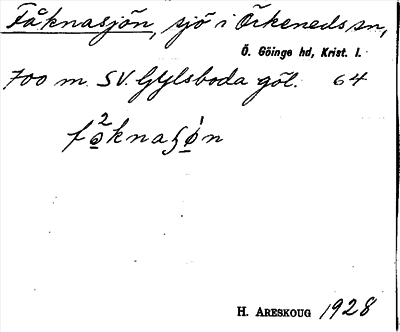 Fåknasjön, sjö i Örkeneds sn,
Ö. Göinge hd, Krist. l.
700 m. SV. Gylsboda göl. 64
fo̲²knaʂø̲ˈn
H. ARESKOUG 1928